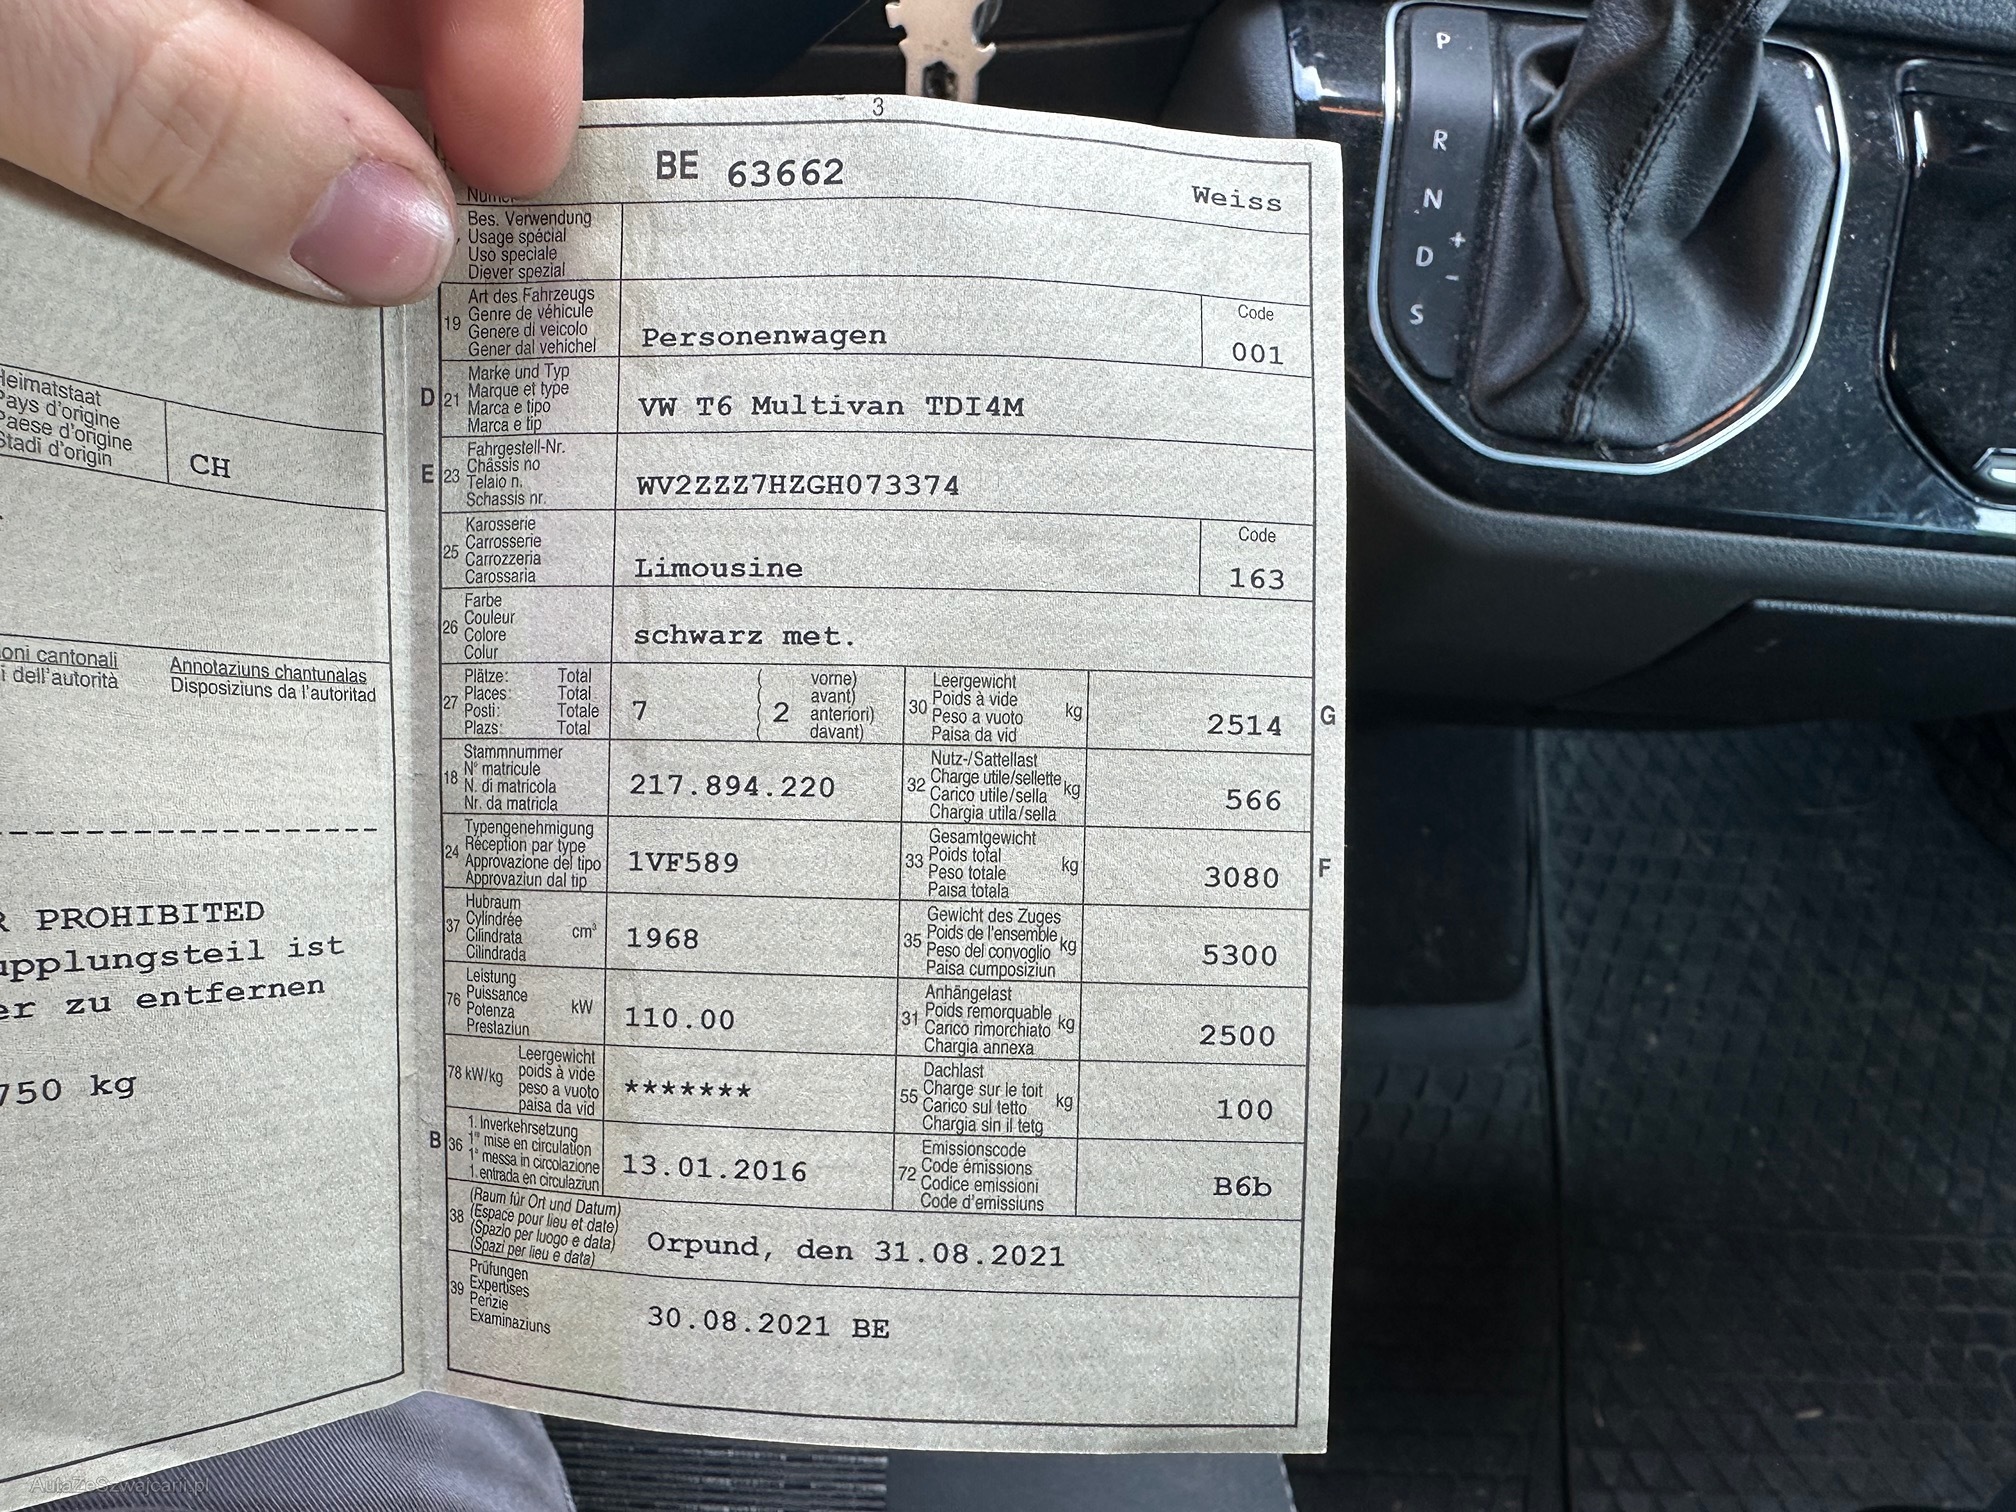 Heimatstaat
Pays d'origine
Paese d'origine
Stadi d'origin
CH
cantonali
dell'autorità
Annotaziuns chantunalas
Disposiziuns da l'autoritad
PROHIBITED
ist
zu entfernen
750 kg
3
BE 63662
Weiss
Bes. Verwendung
Usage spécial
Uso speciale
Diever spezial
19
Art des Fahrzeugs
Genre de véhicule
Genere di veicolo
Gener dal vehichel
Personenwagen
Code
001
D
21
Marke und Typ
Marque et type
Marca e tipo
Marca e tip
VW T6 Multivan TDI4M
E
23
Fahrgestell-Nr.
Châssis no
Telaio n.
Schassis nr.
WV2ZZZ7HZGH073374
25
Karosserie
Carrosserie
Carrozzeria
Carossaria
Limousine
Code
163
26
Farbe
Couleur
Colore
Colur
schwarz met.
27
Plätze: Total
Places: Total
Posti: Totale
Plazs: Total
7
2
vorne)
avant)
anteriori)
davant)
30
Leergewicht
Poids à vide
Peso a vuoto
Paisa da vid
kg
2514
G
18
Stammnummer
N° matricule
N. di matricola
Nr. da matricla
217.894.220
32
Nutz-/Sattellast
Charge utile/sellette
Carico utile/sella
Chargia utila/sella
kg
566
24
Typengenehmigung
Réception par type
Approvazione del tipo
Approvaziun dal tip
1VF589
33
Gesamtgewicht
Poids total
Peso totale
Paisa totala
kg
3080
F
37
Hubraum
Cylindrée
Cilindrata
Cilindrada
cm³
1968
35
Gewicht des Zuges
Poids de l'ensemble
Peso del convoglio
Paisa cumposiziun
kg
5300
76
Leistung
Puissance
Potenza
Prestaziun
kW
110.00
31
Anhängelast
Poids remorquable
Carico rimorchiato
Chargia annexa
kg
2500
78 kW/kg
Leergewicht
poids à vide
peso a vuoto
paisa da vid
*******
55
Dachlast
Charge sur le toit
Carico sul tetto
Chargia sin il tetg
kg
100
B
36
1. Inverkehrsetzung
1re mise en circulation
1a messa in circolazione
1. entrada en circulaziun
13.01.2016
72
Emissionscode
Code émissions
Codice emissioni
Code d'emissiuns
B6b
38
(Raum für Ort und Datum)
(Espace pour lieu et date)
(Spazio per luogo e data)
(Spazi per lieu e data)
Orpund, den 31.08.2021
39
Prüfungen
Expertises
Perizie
Examinaziuns
30.08.2021 BE
P
R
N
D
+
-
S
AutaZeSzwajcarii.pl